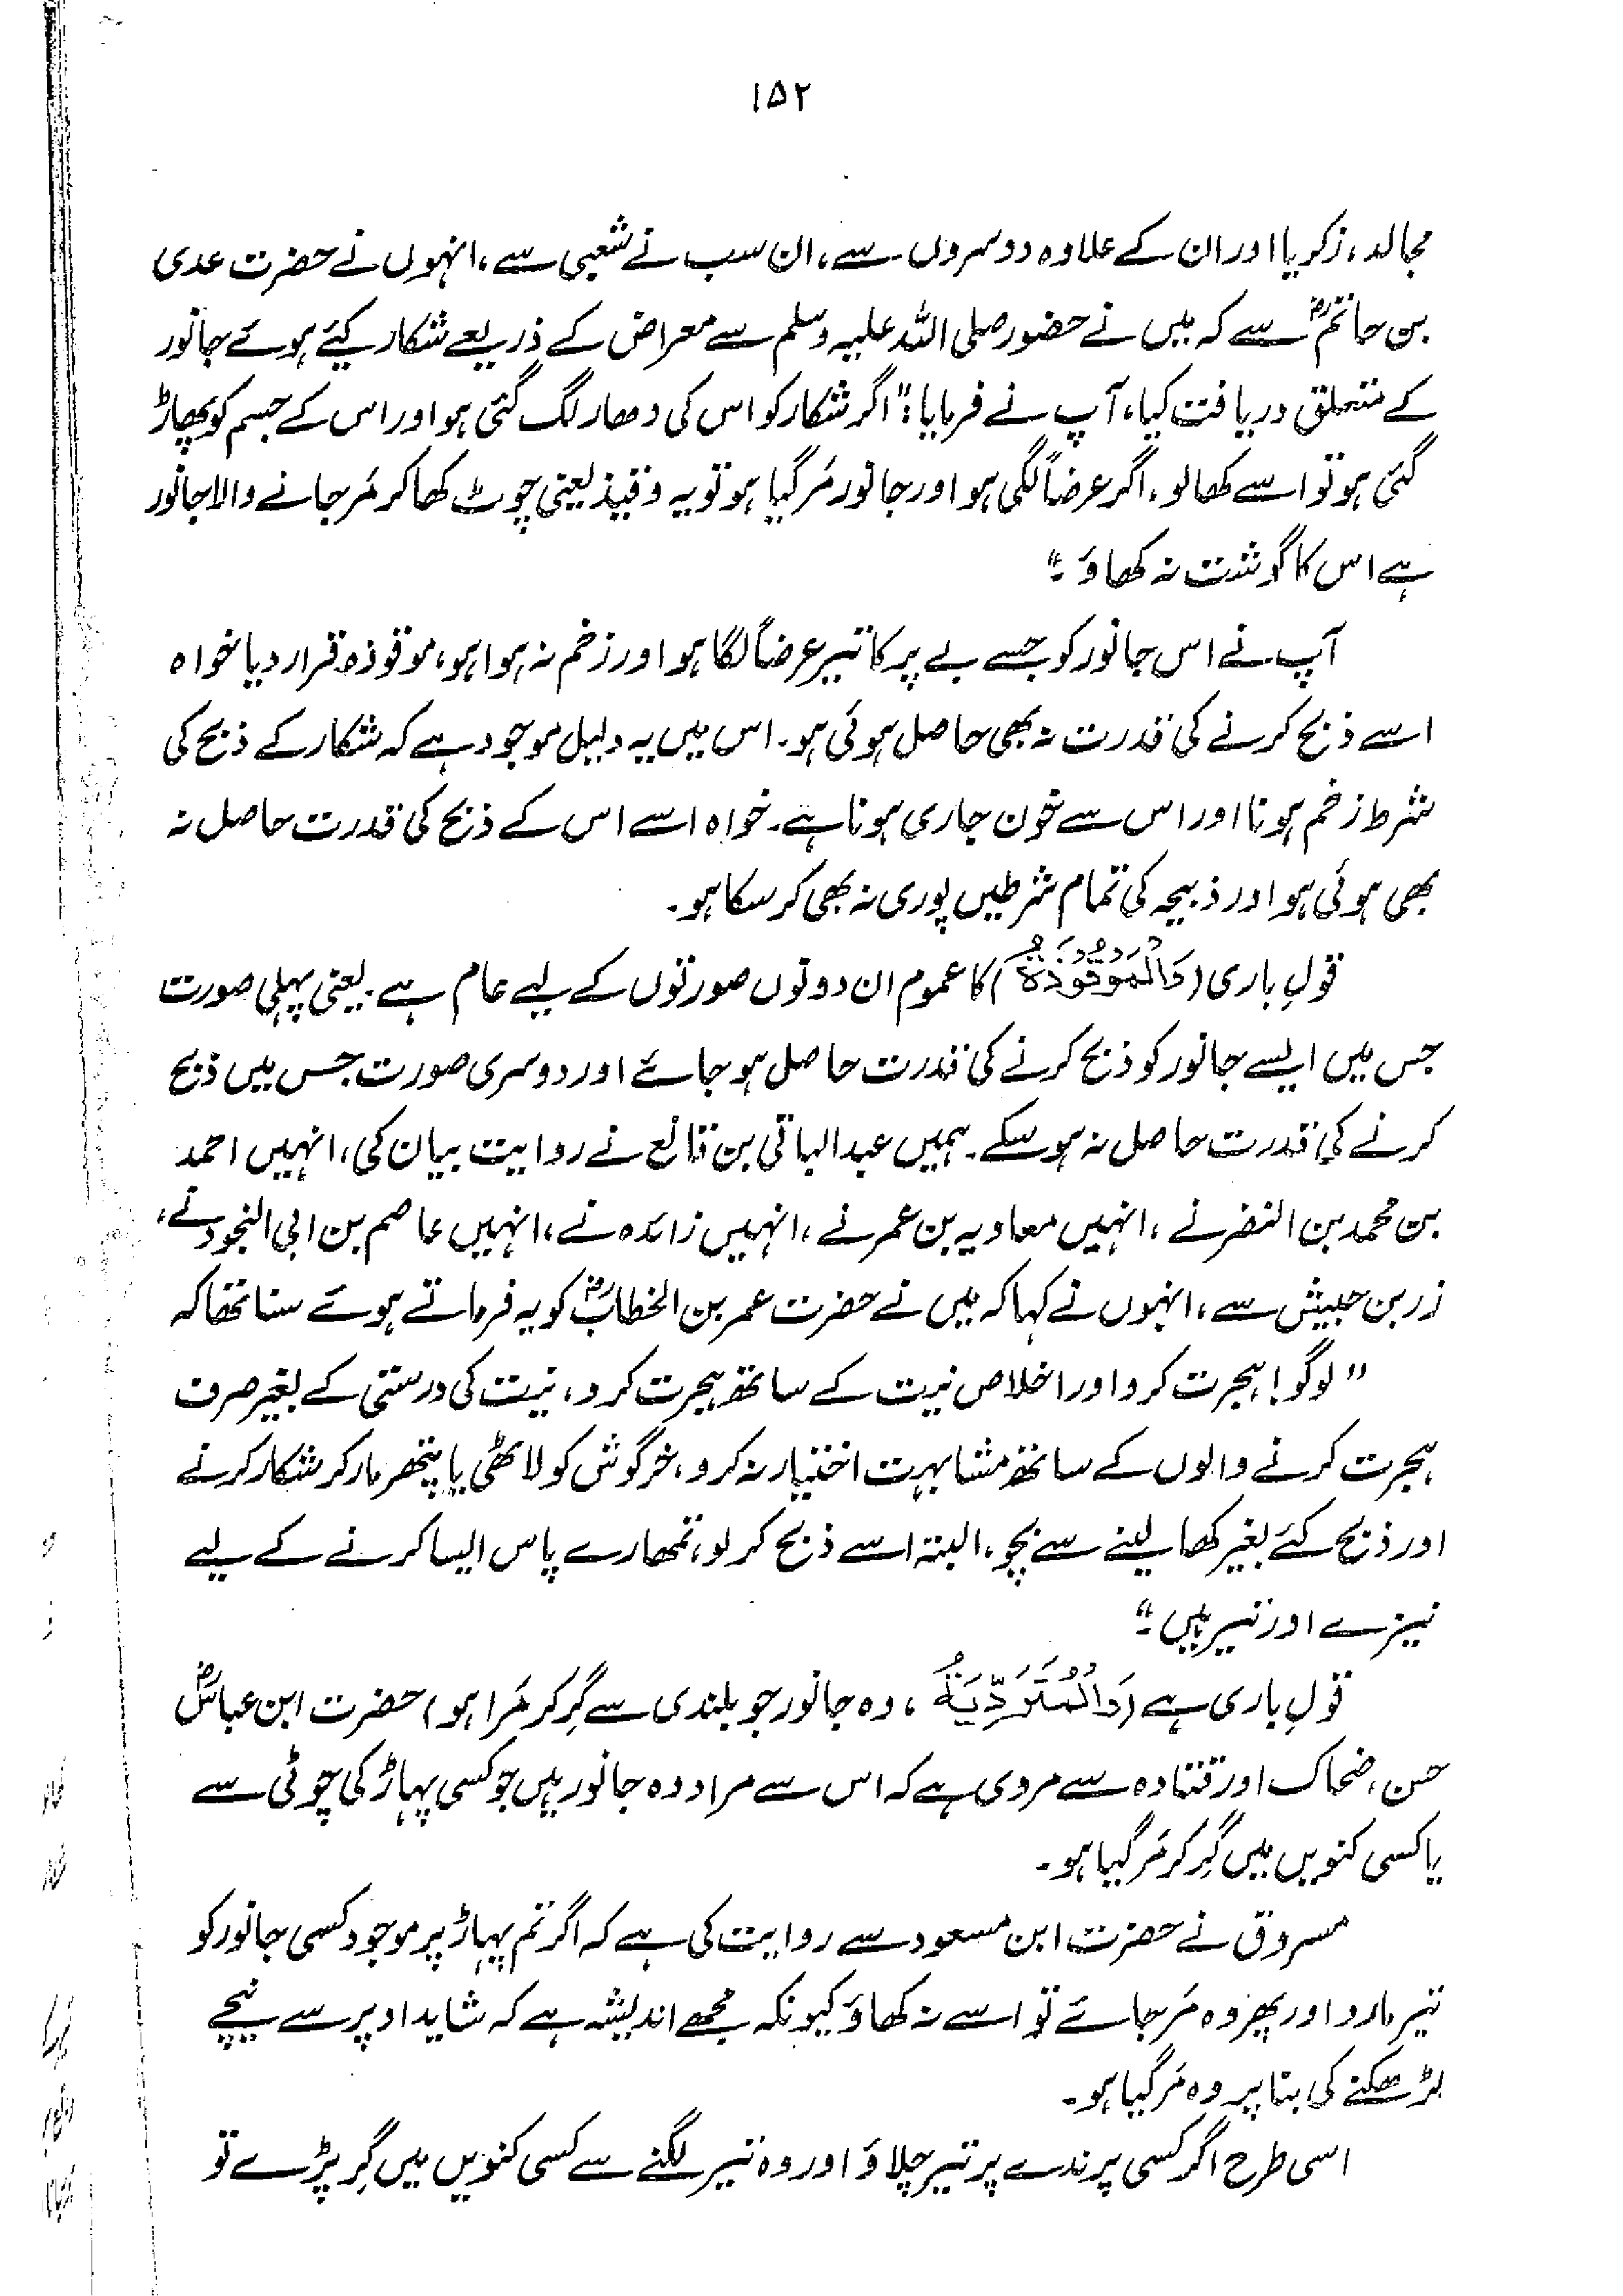 ۱۵۲
مجالد، زکریا اور ان کے علاوہ دوسروں سے، ان سب نے شعبی سے، انہوں نے حضرت عدی
بن حاتمؓ سے کہ میں نے حضور صلی اللہ علیہ وسلم سے معراض کے ذریعے شکار کیئے ہوئے جانور
کے متعلق دریافت کیا، آپ نے فرمایا: "اگر شکار کو اس کی دھار لگ گئی ہو اور اس کے جسم کو پھاڑ
گئی ہو تو اسے کھالو، اگر عرضاً لگی ہو اور جانور مَر گیا ہو تو یہ وقیذ یعنی چوٹ کھا کر مَر جانے والا جانور
ہے اس کا گوشت نہ کھاؤ۔"
آپ نے اس جانور کو جسے بے پر کا تیر عرضاً لگا ہو اور زخم نہ ہوا ہو، موقوذہ قرار دیا خواہ
اسے ذبح کرنے کی قدرت نہ بھی حاصل ہوئی ہو۔ اس میں یہ دلیل موجود ہے کہ شکار کے ذبح کی
شرط زخم ہونا اور اس سے خون جاری ہونا ہے۔ خواہ اسے اس کے ذبح کی قدرت حاصل نہ
بھی ہوئی ہو اور ذبیحہ کی تمام شرطیں پوری نہ بھی کر سکا ہو۔
قولِ باری (وَالْمَوْقُوذَةُ) کا عموم ان دونوں صورتوں کے لیے عام ہے۔ یعنی پہلی صورت
جس میں ایسے جانور کو ذبح کرنے کی قدرت حاصل ہو جائے اور دوسری صورت جس میں ذبح
کرنے کی قدرت حاصل نہ ہو سکے۔ ہمیں عبدالباقی بن قانع نے روایت بیان کی، انہیں احمد
بن محمد بن النضر نے، انہیں معاویہ بن عمر نے، انہیں زائدہ نے، انہیں عاصم بن ابی النجود نے،
زر بن حبیش سے، انہوں نے کہا کہ میں نے حضرت عمر بن الخطابؓ کو یہ فرماتے ہوئے سنا تھا کہ
"لوگو! ہجرت کرو اور اخلاص نیت کے ساتھ ہجرت کرو، نیت کی درستی کے بغیر صرف
ہجرت کرنے والوں کے ساتھ مشابہت اختیار نہ کرو، خرگوش کو لاٹھی یا پتھر مار کر شکار کرنے
اور ذبح کئے بغیر کھا لینے سے بچو، البتہ اسے ذبح کر لو، تمھارے پاس ایسا کرنے کے لیے
نیزے اور تیر ہیں۔"
قولِ باری ہے (وَالْمُتَرَدِّيَةُ، وہ جانور جو بلندی سے گِر کر مَرا ہو) حضرت ابن عباسؓ
حسن، ضحاک اور قتادہ سے مروی ہے کہ اس سے مراد وہ جانور ہیں جو کسی پہاڑ کی چوٹی سے
یا کسی کنویں میں گِر کر مَر گیا ہو۔
مسروق نے حضرت ابن مسعود سے روایت کی ہے کہ اگر تم پہاڑ پر موجود کسی جانور کو
تیر مارو اور پھر وہ مَر جائے تو اسے نہ کھاؤ کیونکہ مجھے اندیشہ ہے کہ شاید اوپر سے نیچے
لڑھکنے کی بنا پر وہ مَر گیا ہو۔
اسی طرح اگر کسی پرندے پر تیر چلاؤ اور وہ تیر لگنے سے کسی کنویں میں گِر پڑے تو